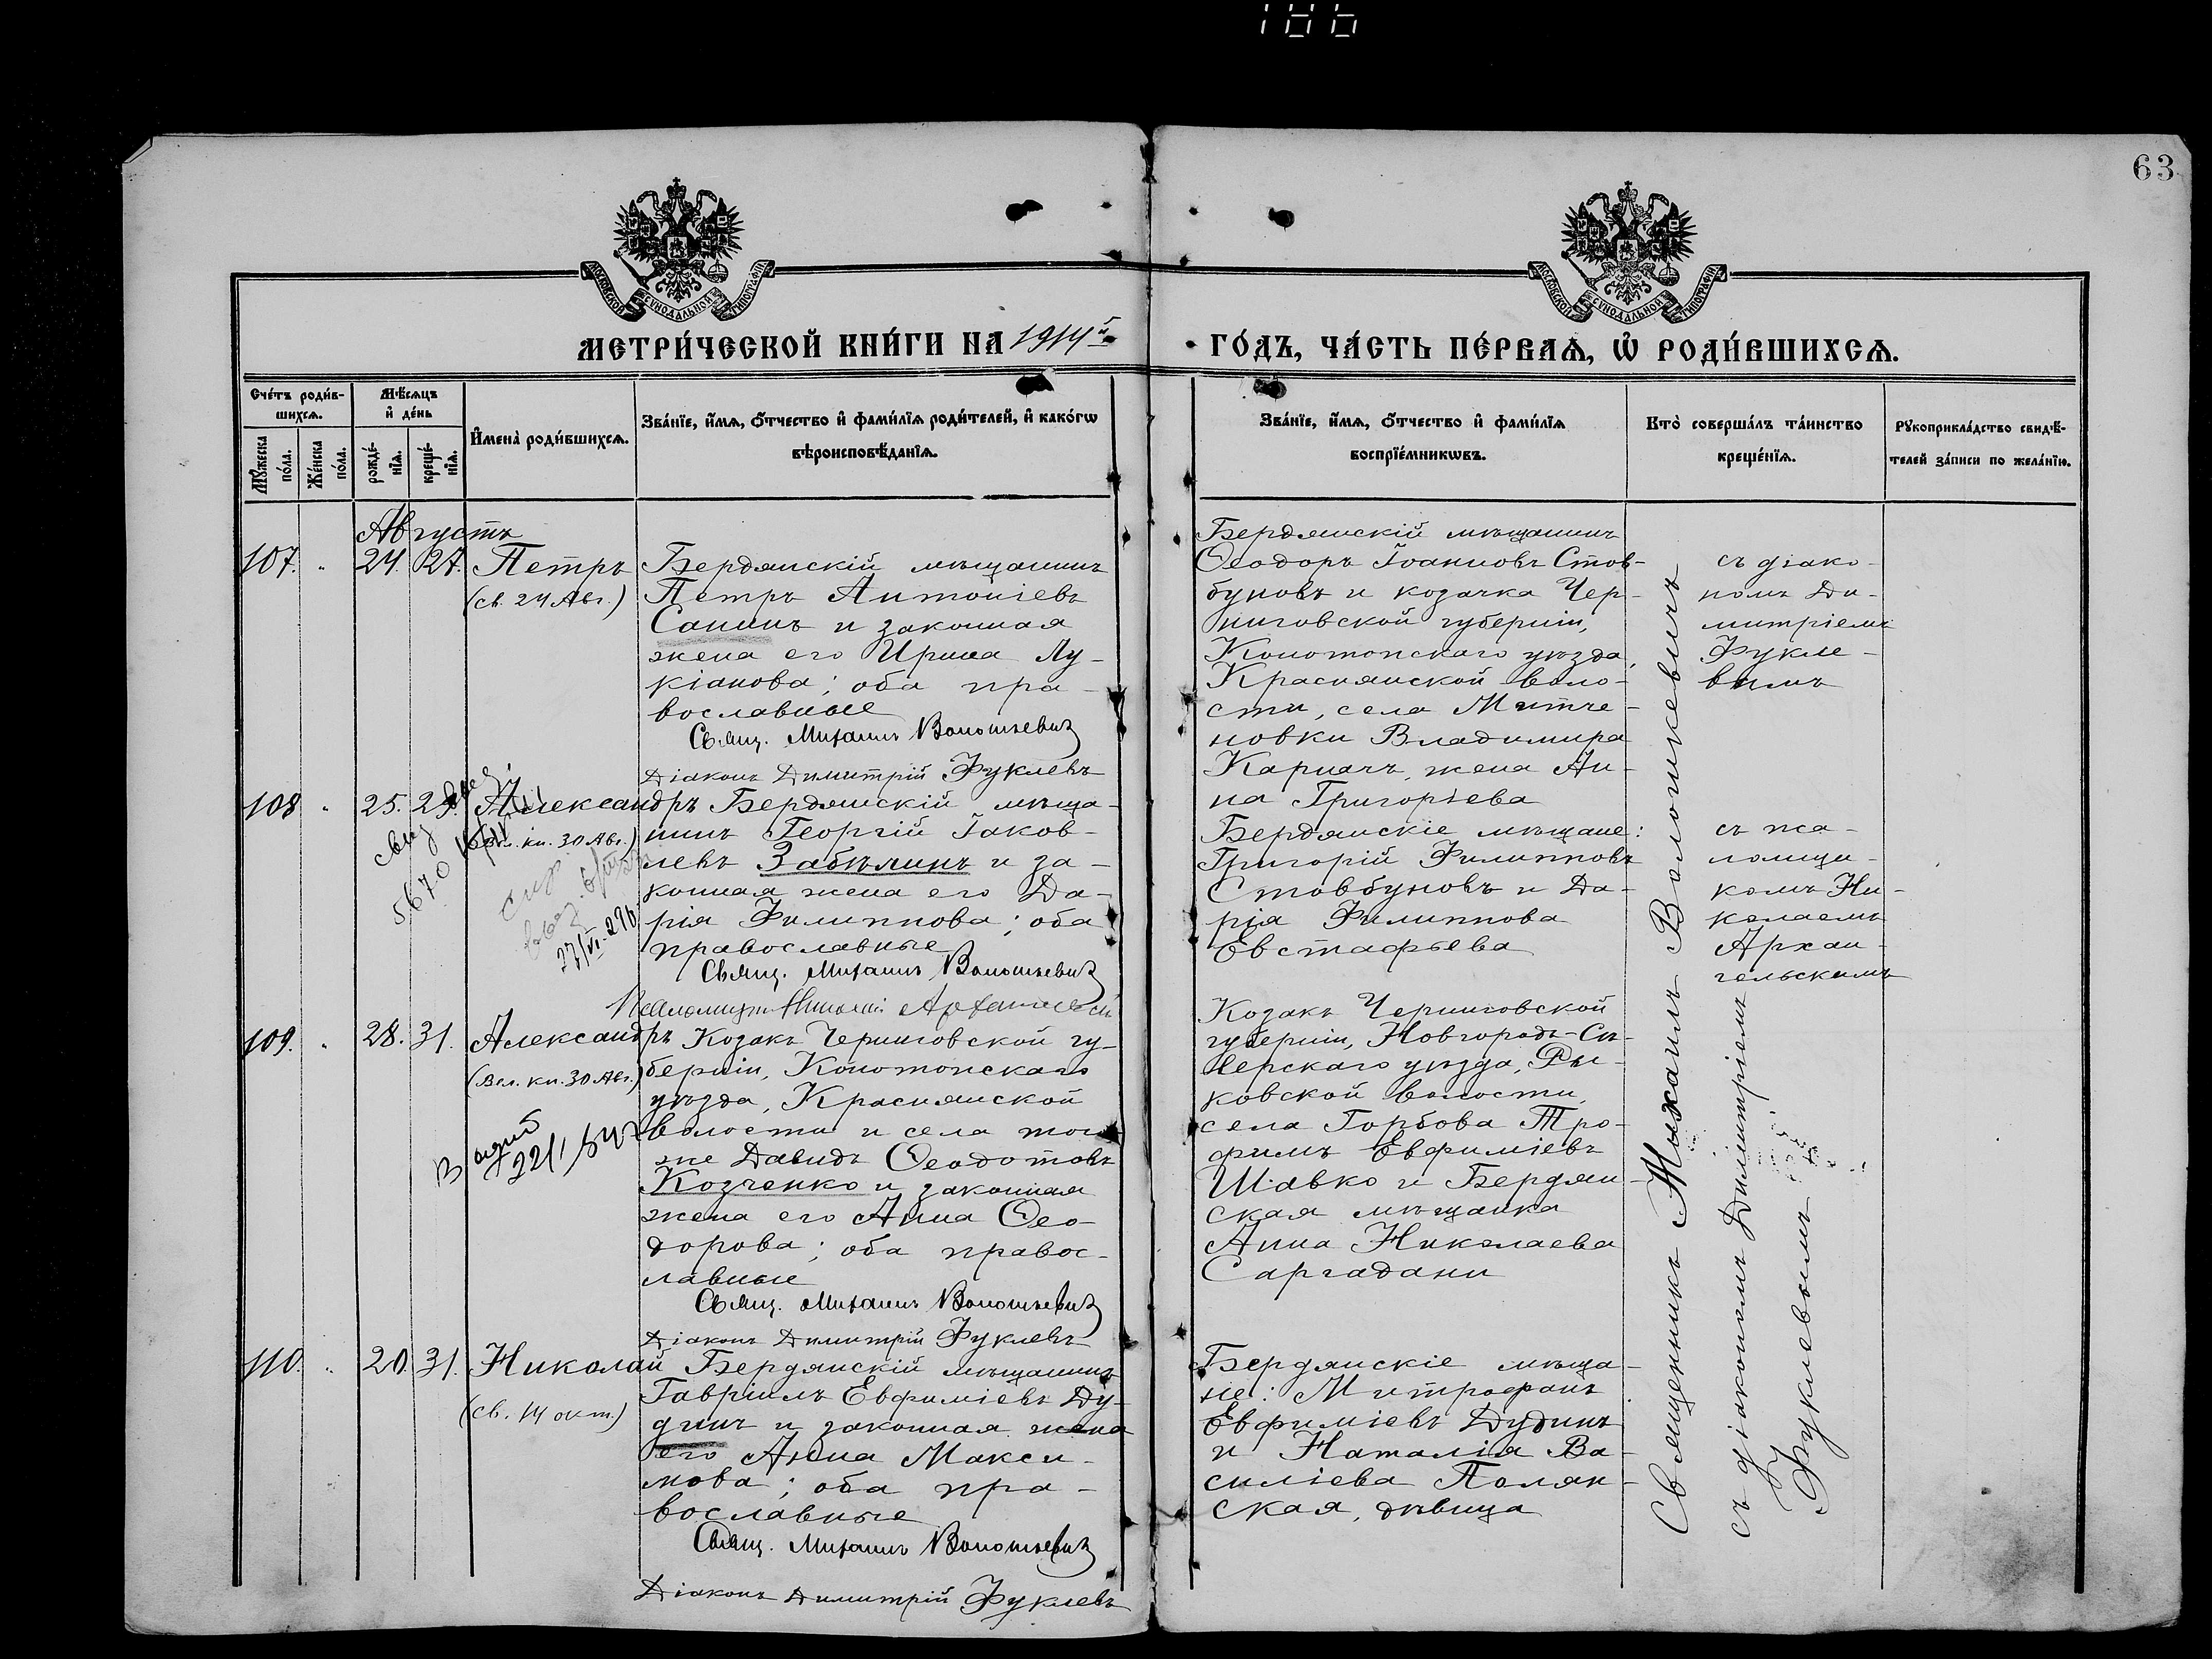 186
63
МОСКОВСКОЙ СѴНОДАЛЬНОЙ ТИПОГРАФІИ
МОСКОВСКОЙ СѴНОДАЛЬНОЙ ТИПОГРАФІИ
МЕТРИ́ЧЕСКОЙ КНИ́ГИ НА 1914й
ГО́ДЪ, ЧА́СТЬ ПЕ́РВАѦ, Ѡ҆ РОДИ́ВШИХСѦ.
Сче́тъ роди́в-
шихсѧ.
Мѣ́сѧцъ
и҆ де́нь
Мꙋ́жеска
по́ла.
Же́нска
по́ла.
рожде́-
нїѧ.
креще́-
нїѧ.
И҆мена̀ роди́вшихсѧ.
Зва́нїе, и҆́мѧ, ѻ҆́тчество и҆ фами́лїѧ роди́телей, и҆ како́гѡ
вѣроисповѣ́данїѧ.
Зва́нїе, и҆́мѧ, ѻ҆́тчество и҆ фами́лїѧ
воспрїе́мникѡвъ.
Кто̀ соверша́лъ та́инство
креще́нїѧ.
Рꙋкоприкла́дство свидѣ́-
телей за́писи по жела́нїю.
Августъ
107. " 24. 27. Петръ
(св. 24 Авг.)
Бердянскій мѣщанинъ
Петръ Антоніевъ
Санинъ и законная
жена его Ирина Лу-
кіанова; оба пра-
вославные
Свящ. Михаилъ Волошкевичъ
Діаконъ Димитрій Фуклевъ
Бердянскій мѣщанинъ
Ѳеодоръ Іоанновъ Стов-
буновъ и козачка Чер-
ниговской губерніи,
Конотопскаго уѣзда,
Краснянской воло-
сти, села Митче-
новки Владимира
Карпачъ, жена Ан-
на Григорьева
съ діако-
номъ Ди-
митріемъ
Фукле-
вымъ
108 " 25. 29. Александръ
(Вел. кн. 30 Авг.)
5670
27/VI-296
Бердянскій мѣща-
нинъ Георгій Іаков-
левъ Забѣлинъ и за-
конная жена его Да-
рія Филиппова; оба
православные
Свящ. Михаилъ Волошкевичъ
Псаломщикъ Николай Архангельскій
Бердянскіе мѣщане:
Григорій Филипповъ
Стовбуновъ и Да-
рія Филиппова
Евстафьева
съ пса-
ломщи-
комъ Ни-
колаемъ
Архан-
гельскимъ
109. " 28. 31. Александръ
(Вел. кн. 30 Авг.)
22/I 547
Козакъ Черниговской гу-
берніи, Конотопскаго
уѣзда, Краснянской
волости и села того
же Давидъ Ѳеодотовъ
Козченко и законная
жена его Анна Ѳео-
дорова; оба правос-
лавные
Свящ. Михаилъ Волошкевичъ
Діаконъ Димитрій Фуклевъ
Козакъ Черниговской
губерніи, Новгородъ-Сѣ-
верскаго уѣзда, Ры-
ковской волости,
села Горбова Тро-
фимъ Евфиміевъ
Шавко и Бердян-
ская мѣщанка
Анна Николаева
Саргадани
110. " 20. 31. Николай
(св. 14 окт.)
Бердянскій мѣщанинъ
Гавріилъ Евфиміевъ Ду-
динъ и законная жена
его Анна Макси-
мова; оба пра-
вославные
Свящ. Михаилъ Волошкевичъ
Діаконъ Димитрій Фуклевъ
Бердянскіе мѣща-
не: Митрофанъ
Евфиміевъ Дудинъ
и Наталія Ва-
силіева Полян-
ская, дѣвица
Священникъ Михаилъ Волошкевичъ
съ діакономъ Димитріемъ
Фуклевымъ